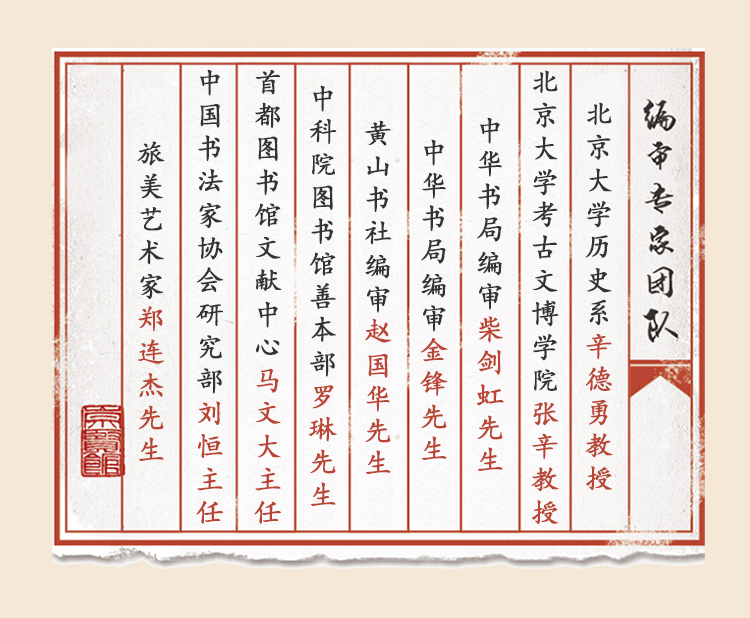 编审专家团队
北京大学历史系辛德勇教授
北京大学考古文博学院张辛教授
中华书局编审柴剑虹先生
中华书局编审金锋先生
黄山书社编审赵国华先生
中科院图书馆善本部罗琳先生
首都图书馆文献中心马文大主任
中国书法家协会研究部刘恒主任
旅美艺术家郑连杰先生
崇贤馆